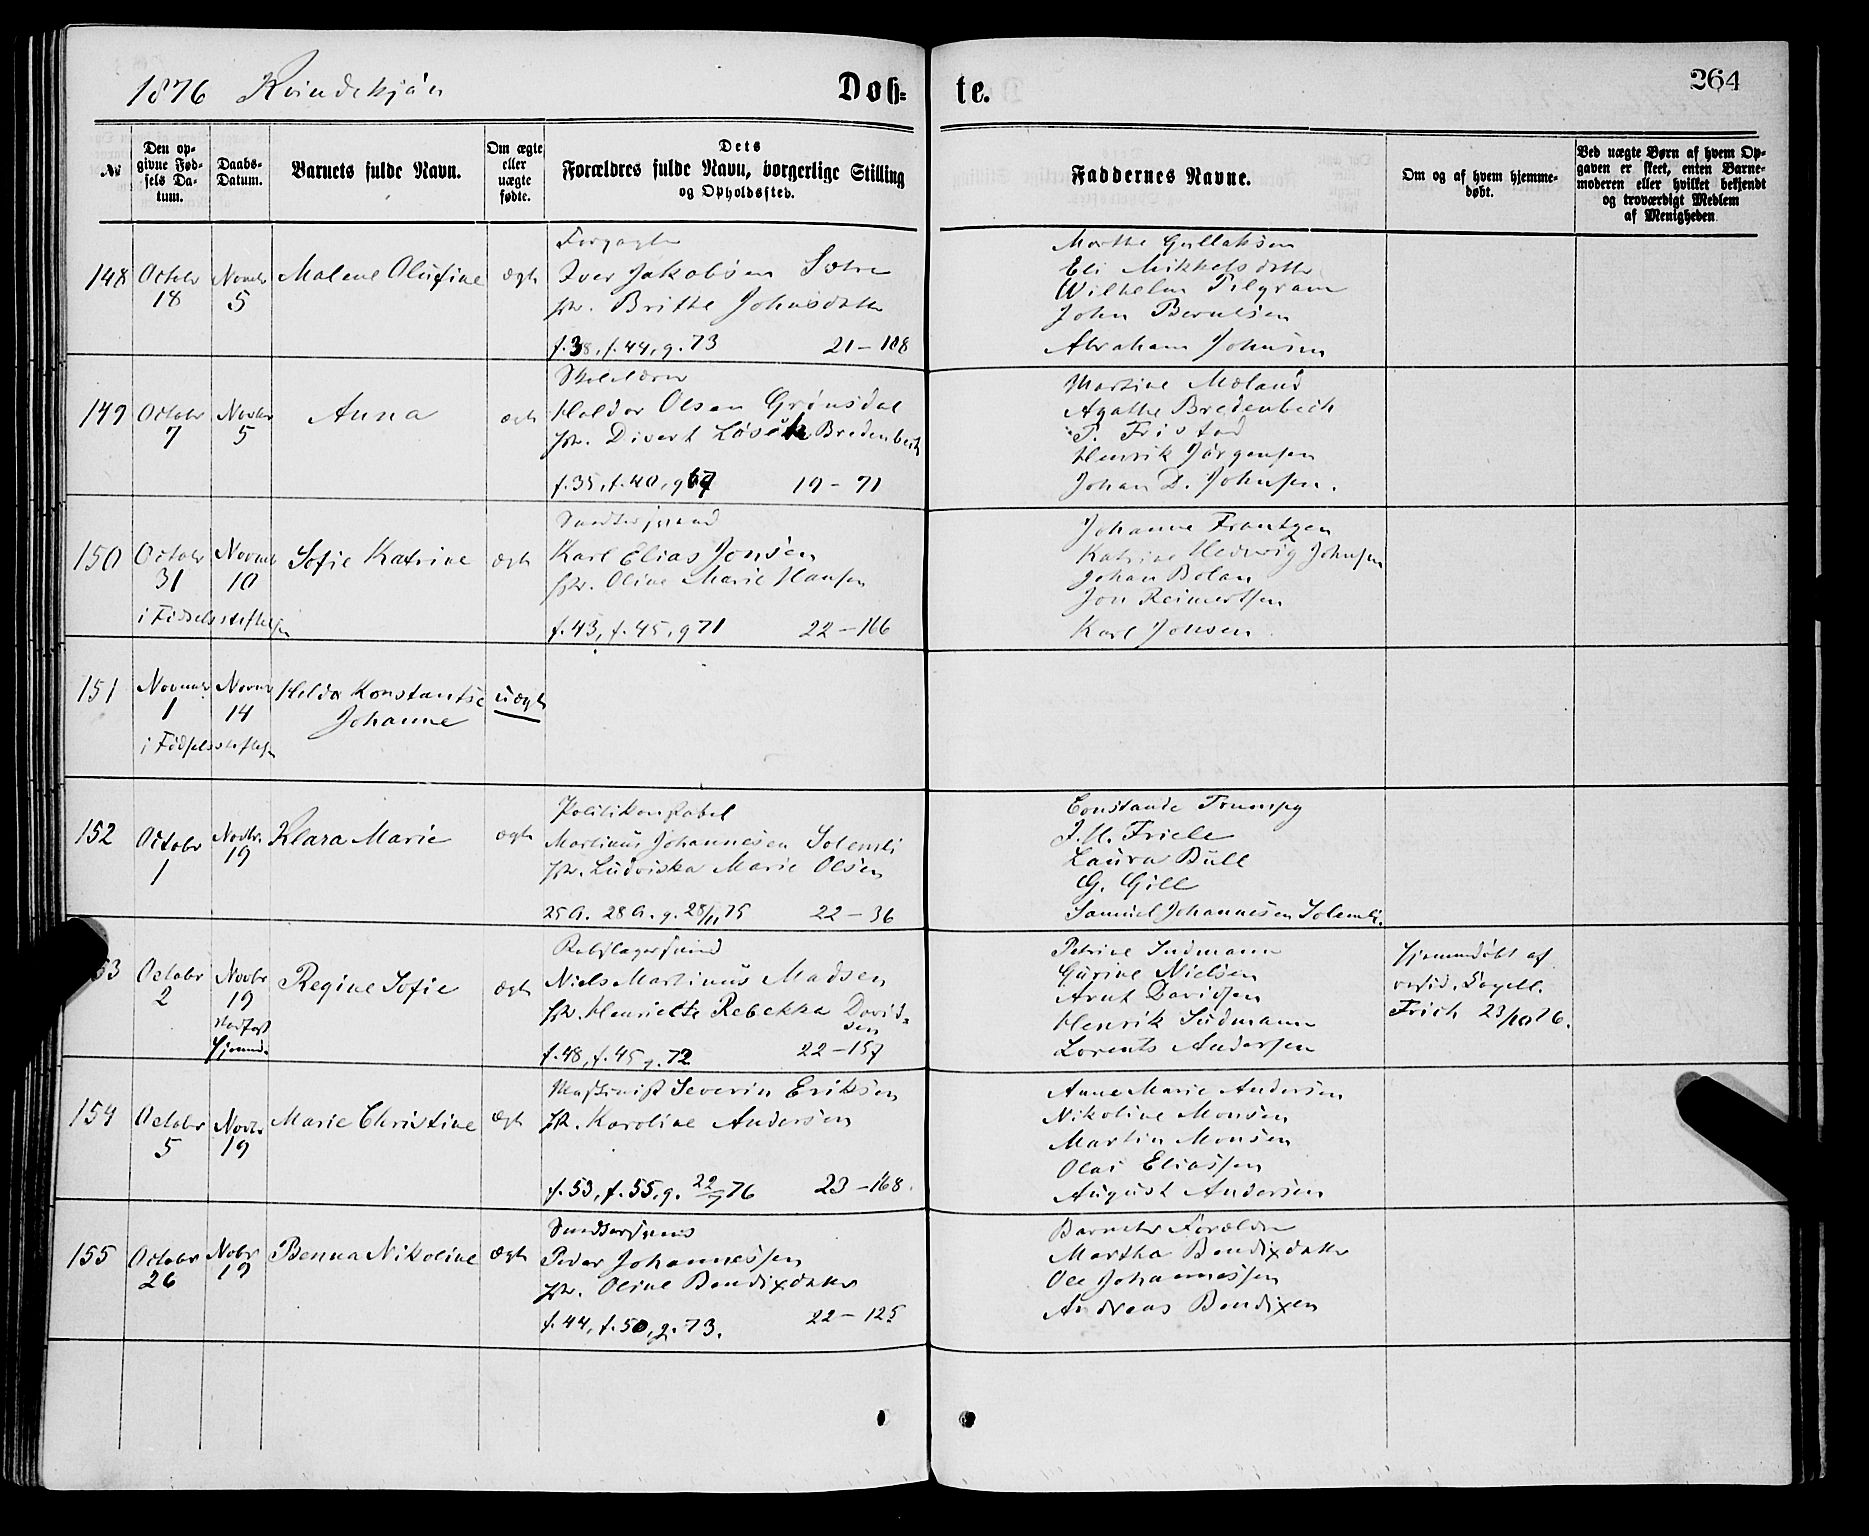 1876 Kvindekjøn
Døb-
te.
264
№
Den op-
givne Fød-
sels Da-
tum.
Daabs-
Datum.
Barnets fulde Navn.
Om ægte
eller
uægte
fødte.
Dets
Forældres fulde Navn, borgerlige Stilling
og Opholdssted.
Faddernes Navne.
Om og af hvem hjemme-
døbt.
Ved uægte Børn af hvem Op-
gaven er skeet, enten Barne-
moderen eller hvilket bekjendt
og troværdigt Medlem
af Menigheden.
148
Octobr
18
Novbr
5
Malene Olufine
ægte
Iver Jakobsen Sætre
Hst. Brithe Johnsdatter
f. 38, f. 44, g. 73 21-108
Marthe Gullaksen
Eli Mikkelsdatter
Wilhelm Pilgram
John Berntsen
Abraham Johnsen
149
Octobr
7
Novbr
5
Anna
ægte
Haldor Olsen Grønsdal
Hst. Divert Lovise Bredenbech
f. 35, f. 40, g 67 19-71
Martine Moland
Agathe Bredenbech
P. Fristad
Henrik Jørgensen
Johan D. Johnsen.
150
Octobr
31
Novmbr
10
i Fødselsstiftelsen
Sofie Katrine
ægte
Karl Elias Jonsen
Hst. Oline Marie Hansen
f. 43, f. 45, g 71 22-166
Johanne Frantzen
Katrine Hedwig Johnsen
Johan Bolan
Jon Reimertsen
Karl Jonsen
151
Novmbr
1
Novmbr
14
i Fødselsstiftelsen
Helda Konstantse
Johanne
uægte
152
Octobr
1
Novbr.
19
Klara Marie
ægte
Politikonstabel
Martinus Johannesen Solemli
Hst. Ludviska Marie Olsen
25 A. 28 A. g. 28/11 75 22-36
Constande Trumpy
J. M. Friele
Laura Bull
G. Gill
Samuel Johannesen Solemli.
53
Octobr
2
Novbr
19
stadfæst
Hjemmd.
Regine Sofie
ægte
Rebslagersvend
Niels Martinus Madsen
Hst. Henriette Rebekka David-
sen
f. 48, f. 45 g. 72 22-157
Petrine Sudmann
Gurine Nielsen
Arnt Davidsen
Henrik Sudmann
Lorents Andersen
Hjemmedøbt af
resid. Capell.
Frich 23/10 76.
154
Octobr
5
Novbr
19
Marie Christine
ægte
Maskinist Severin Eriksen
Hst. Karoline Andersen
f. 53, f. 55, g. 22/7 76 23-168.
Anne Marie Andersen
Nikoline Monsen
Martin Monsen
Olai Eliassen
August Andersen
155
Octobr
26
Nobr
19
Benna Nikoline
ægte
Peder Johannessen
Hst. Oline Bendixdatter
f. 44, f. 50, g. 73. 22-125
Barnets Forældre
Martha Bendixdatter
Ole Johannessen
Andreas Bendixen